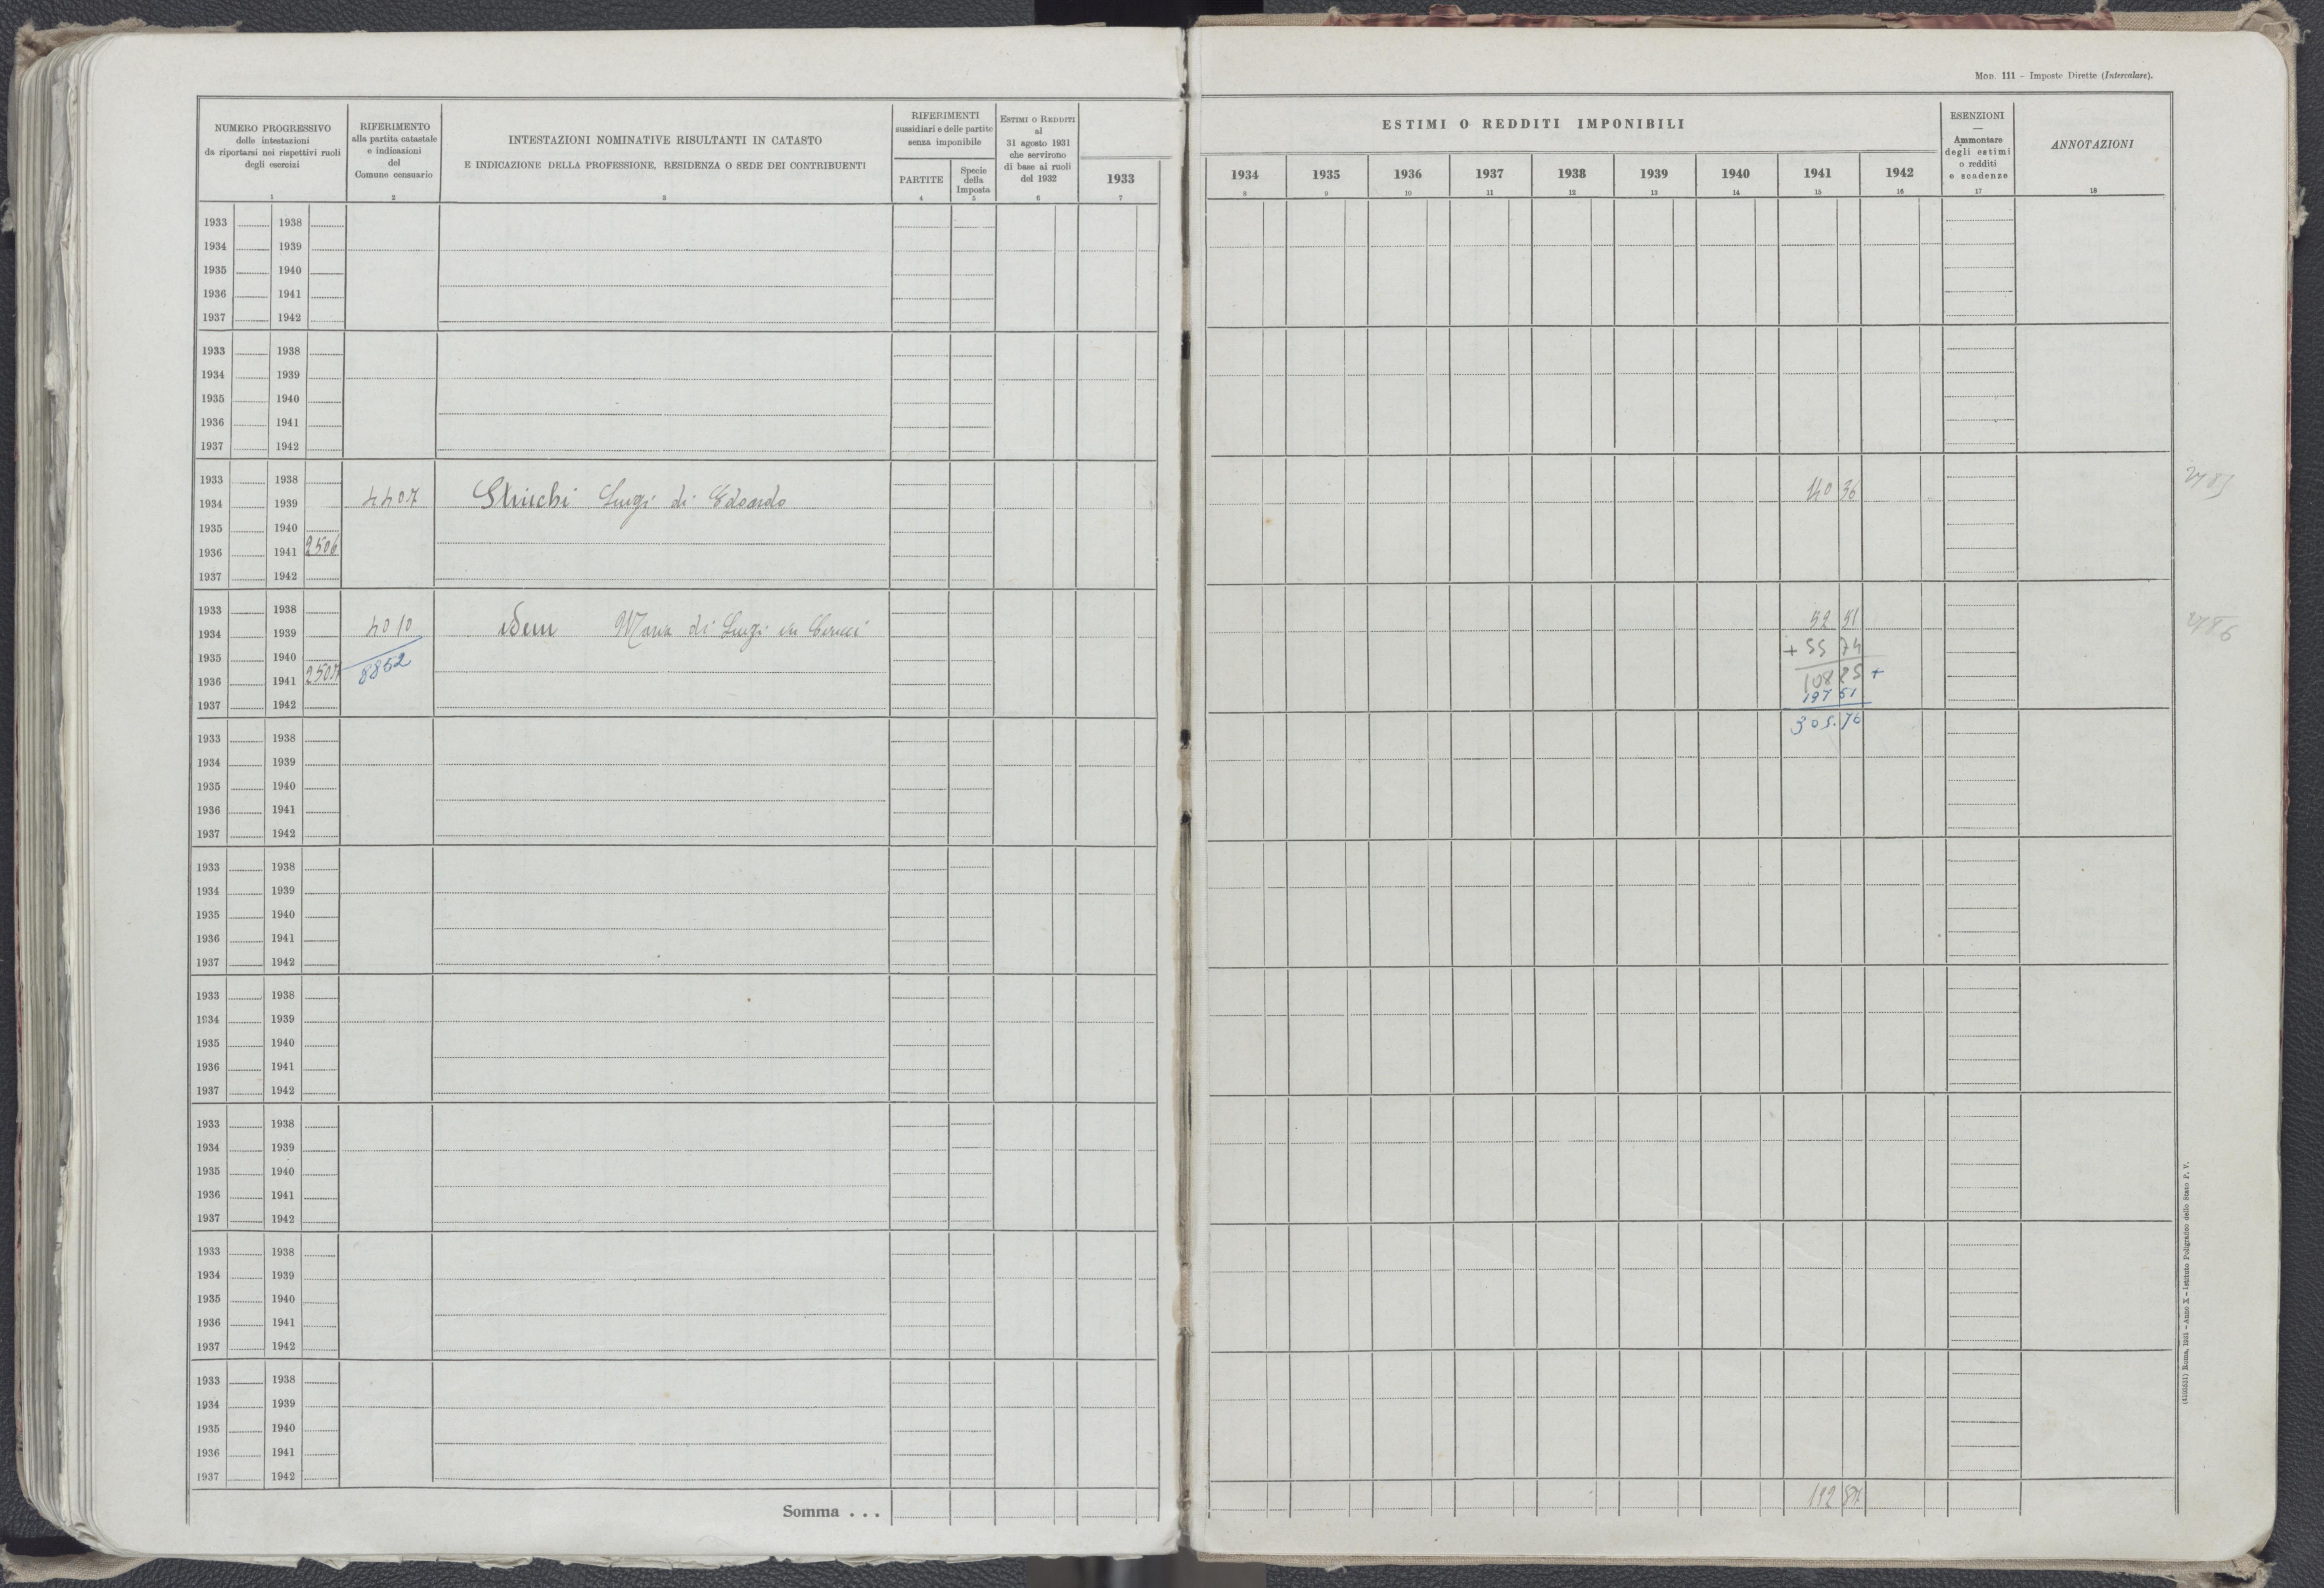 Mod. 111 – Imposte Dirette (Intercalare).
NUMERO PROGRESSIVO
delle intestazioni
da riportarsi nei rispettivi ruoli
degli esercizi
1
RIFERIMENTO
alla partita catastale
e indicazioni
del
Comune censuario
2
INTESTAZIONI NOMINATIVE RISULTANTI IN CATASTO
E INDICAZIONE DELLA PROFESSIONE, RESIDENZA O SEDE DEI CONTRIBUENTI
3
RIFERIMENTI
sussidiari e delle partite
senza imponibile
PARTITE
4
Specie
della
Imposta
5
ESTIMI O REDDITI
al
31 agosto 1931
che servirono
di base ai ruoli
del 1932
6
1933
7
ESTIMI O REDDITI IMPONIBILI
1934 1935 1936 1937 1938 1939 1940 1941 1942
8 9 10 11 12 13 14 15 16
ESENZIONI
—
Ammontare
degli estimi
o redditi
e scadenze
17
ANNOTAZIONI
18
1933 1938
1934 1939
1935 1940
1936 1941
1937 1942
1933 1938
1934 1939
1935 1940
1936 1941
1937 1942
1933 1938
1934 1939 4407 Luigi di Edoardo 140 36
1935 1940
1936 1941 2506
1937 1942
1933 1938
1934 1939 4010 Idem Maria di Luigi in 52 51
1935 1940 8852 + 55 74
1936 1941 2507 108 25 +
1937 1942 197 51
305.76
1933 1938
1934 1939
1935 1940
1936 1941
1937 1942
1933 1938
1934 1939
1935 1940
1936 1941
1937 1942
1933 1938
1934 1939
1935 1940
1936 1941
1937 1942
1933 1938
1934 1939
1935 1940
1936 1941
1937 1942
1933 1938
1934 1939
1935 1940
1936 1941
1937 1942
1933 1938
1934 1939
1935 1940
1936 1941
1937 1942
Somma . . . 192 87
Roma, 1931 – Anno X – Istituto Poligrafico dello Stato P. V.